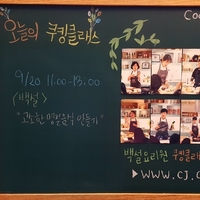 오늘의 쿠킹클래스
Coo
9/20 11:00-13:00
<백설>
"고소한 명절음식 만들기"
백설요리원 쿠킹클래
▶WWW.CJ.C